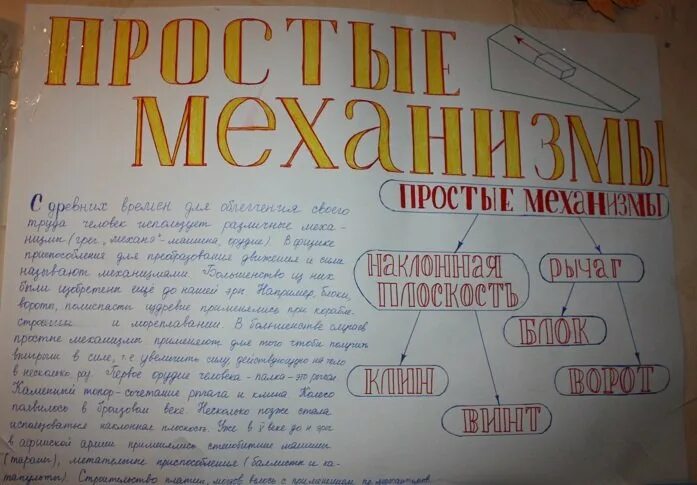 ПРОСТЫЕ
МЕХАНИЗМЫ
ПРОСТЫЕ МЕХАНИЗМЫ
НАКЛОННАЯ
ПЛОСКОСТЬ
РЫЧАГ
БЛОК
КЛИН
ВОРОТ
ВИНТ
С древних времен для облегчения своего
труда человек использует различные меха-
низмы (греч. "механэ" - машина, орудие). В физике
приспособления для преобразования движения и силы
называют механизмами. Большинство из них
были изобретены ещё до нашей эры. Например, блоки,
вороты, полиспасты издревле применялись при корабле-
строении и мореплавании. В большинстве случаев
простые механизмы применяют для того чтобы получить
выигрыш в силе, т.е увеличить силу, действующую на тело
в несколько раз. Первое орудие человека - палка - это рычаг.
Каменный топор - сочетание рычага и клина. Колесо
появилось в бронзовом веке. Несколько позже стала
использоваться наклонная плоскость. Уже в V веке до н эры
в афинской армии применялись стенобитные машины
(тараны), метательные приспособления (баллисты и ка-
тапульты). Строительство плотин, мостов